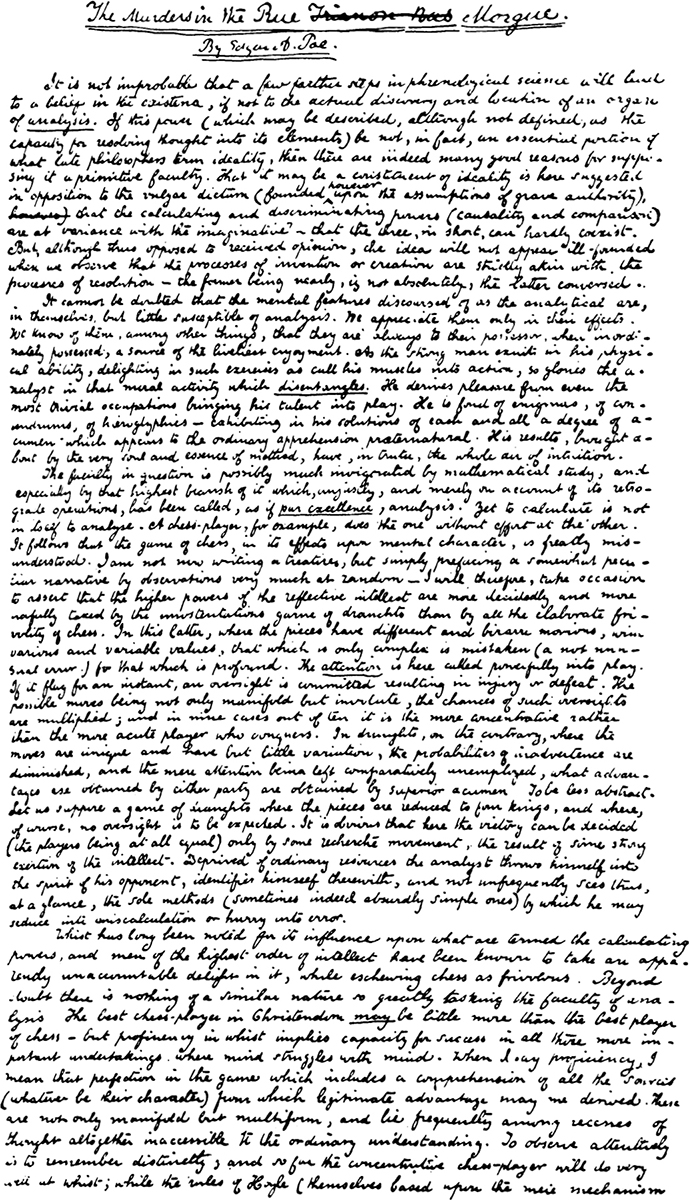 The Murders in the Rue Trianon Bas Morgue.
By Edgar A. Poe.
It is not improbable that a few farther steps in phrenological science will lead
to a belief in the existence, if not to the actual discovery and location of an organ
of analysis. If this power (which may be described, although not defined, as the
capacity for resolving thought into its elements) be not, in fact, an essential portion of
what late philosophers term ideality, then there are indeed many good reasons for suppo-
sing it a primitive faculty. That it may be a constituent of ideality is here suggested
in opposition to the vulgar dictum (founded, however upon the assumptions of grave authority),
however) that the calculating and discriminating powers (causality and comparison)
are at variance with the imaginative — that the three, in short, can hardly coexist.
But, although thus opposed to received opinion, the idea will not appear ill-founded
when we observe that the processes of invention or creation are strictly akin with the
processes of resolution — the former being nearly, if not absolutely, the latter conversed.
It cannot be doubted that the mental features discoursed of as the analytical are,
in themselves, but little susceptible of analysis. We appreciate them only in their effects.
We know of them, among other things, that they are always to their possessor, when inordi-
nately possessed, a source of the liveliest enjoyment. As the strong man exults in his physi-
cal ability, delighting in such exercises as call his muscles into action, so glories the a-
nalyst in that moral activity which disentangles. He derives pleasure from even the
most trivial occupations bringing his talent into play. He is fond of enigmas, of con-
undrums, of hieroglyphics — exhibiting in his solutions of each and all a degree of a-
cumen which appears to the ordinary apprehension præternatural. His results, brought a-
bout by the very soul and essence of method, have, in truth, the whole air of intuition.
The faculty in question is possibly much invigorated by mathematical study, and
especially by that highest branch of it which, unjustly, and merely on account of its retro-
grade operations, has been called, as if par excellence, analysis. Yet to calculate is not
in itself to analyse. A chess-player, for example, does the one without effort at the other.
It follows that the game of chess, in its effects upon mental character, is greatly mis-
understood. I am not now writing a treatise, but simply prefacing a somewhat pecu-
liar narrative by observations very much at random — I will, therefore, take occasion
to assert that the higher powers of the reflective intellect are more decidedly and more
usefully tasked by the unostentatious game of draughts than by all the elaborate fri-
volity of chess. In this latter, where the pieces have different and bizarre motions, with
various and variable values, that which is only complex is mistaken (a not unu-
sual error) for that which is profound. The attention is here called powerfully into play.
If it flag for an instant, an oversight is committed resulting in injury or defeat. The
possible moves being not only manifold but involute, the chances of such oversights
are multiplied; and in nine cases out of ten it is the more concentrative rather
than the more acute player who conquers. In draughts, on the contrary, where the
moves are unique and have but little variation, the probabilities of inadvertence are
diminished, and the mere attention being left comparatively unemployed, what advan-
tages are obtained by either party are obtained by superior acumen. To be less abstract.
Let us suppose a game of draughts where the pieces are reduced to four kings, and where,
of course, no oversight is to be expected. It is obvious that here the victory can be decided
(the players being at all equal) only by some recherché movement, the result of some strong
exertion of the intellect. Deprived of ordinary resources the analyst throws himself into
the spirit of his opponent, identifies himself therewith, and not unfrequently sees thus,
at a glance, the sole methods (sometimes indeed absurdly simple ones) by which he may
seduce into miscalculation or hurry into error.
Whist has long been noted for its influence upon what are termed the calculating
powers, and men of the highest order of intellect have been known to take an appa-
rently unaccountable delight in it, while eschewing chess as frivolous. Beyond
doubt there is nothing of a similar nature so greatly tasking the faculty of ana-
lysis. The best chess-player in Christendom may be little more than the best player
of chess — but proficiency in whist implies capacity for success in all those more im-
portant undertakings where mind struggles with mind. When I say proficiency, I
mean that perfection in the game which includes a comprehension of all the sources
(whatever be their character) from which legitimate advantage may be derived. These
are not only manifold but multiform, and lie frequently among recesses of
thought altogether inaccessible to the ordinary understanding. To observe attentively
is to remember distinctly; and so far the concentrative chess-player will do very
well at whist; while the rules of Hoyle (themselves based upon the mere mechanism